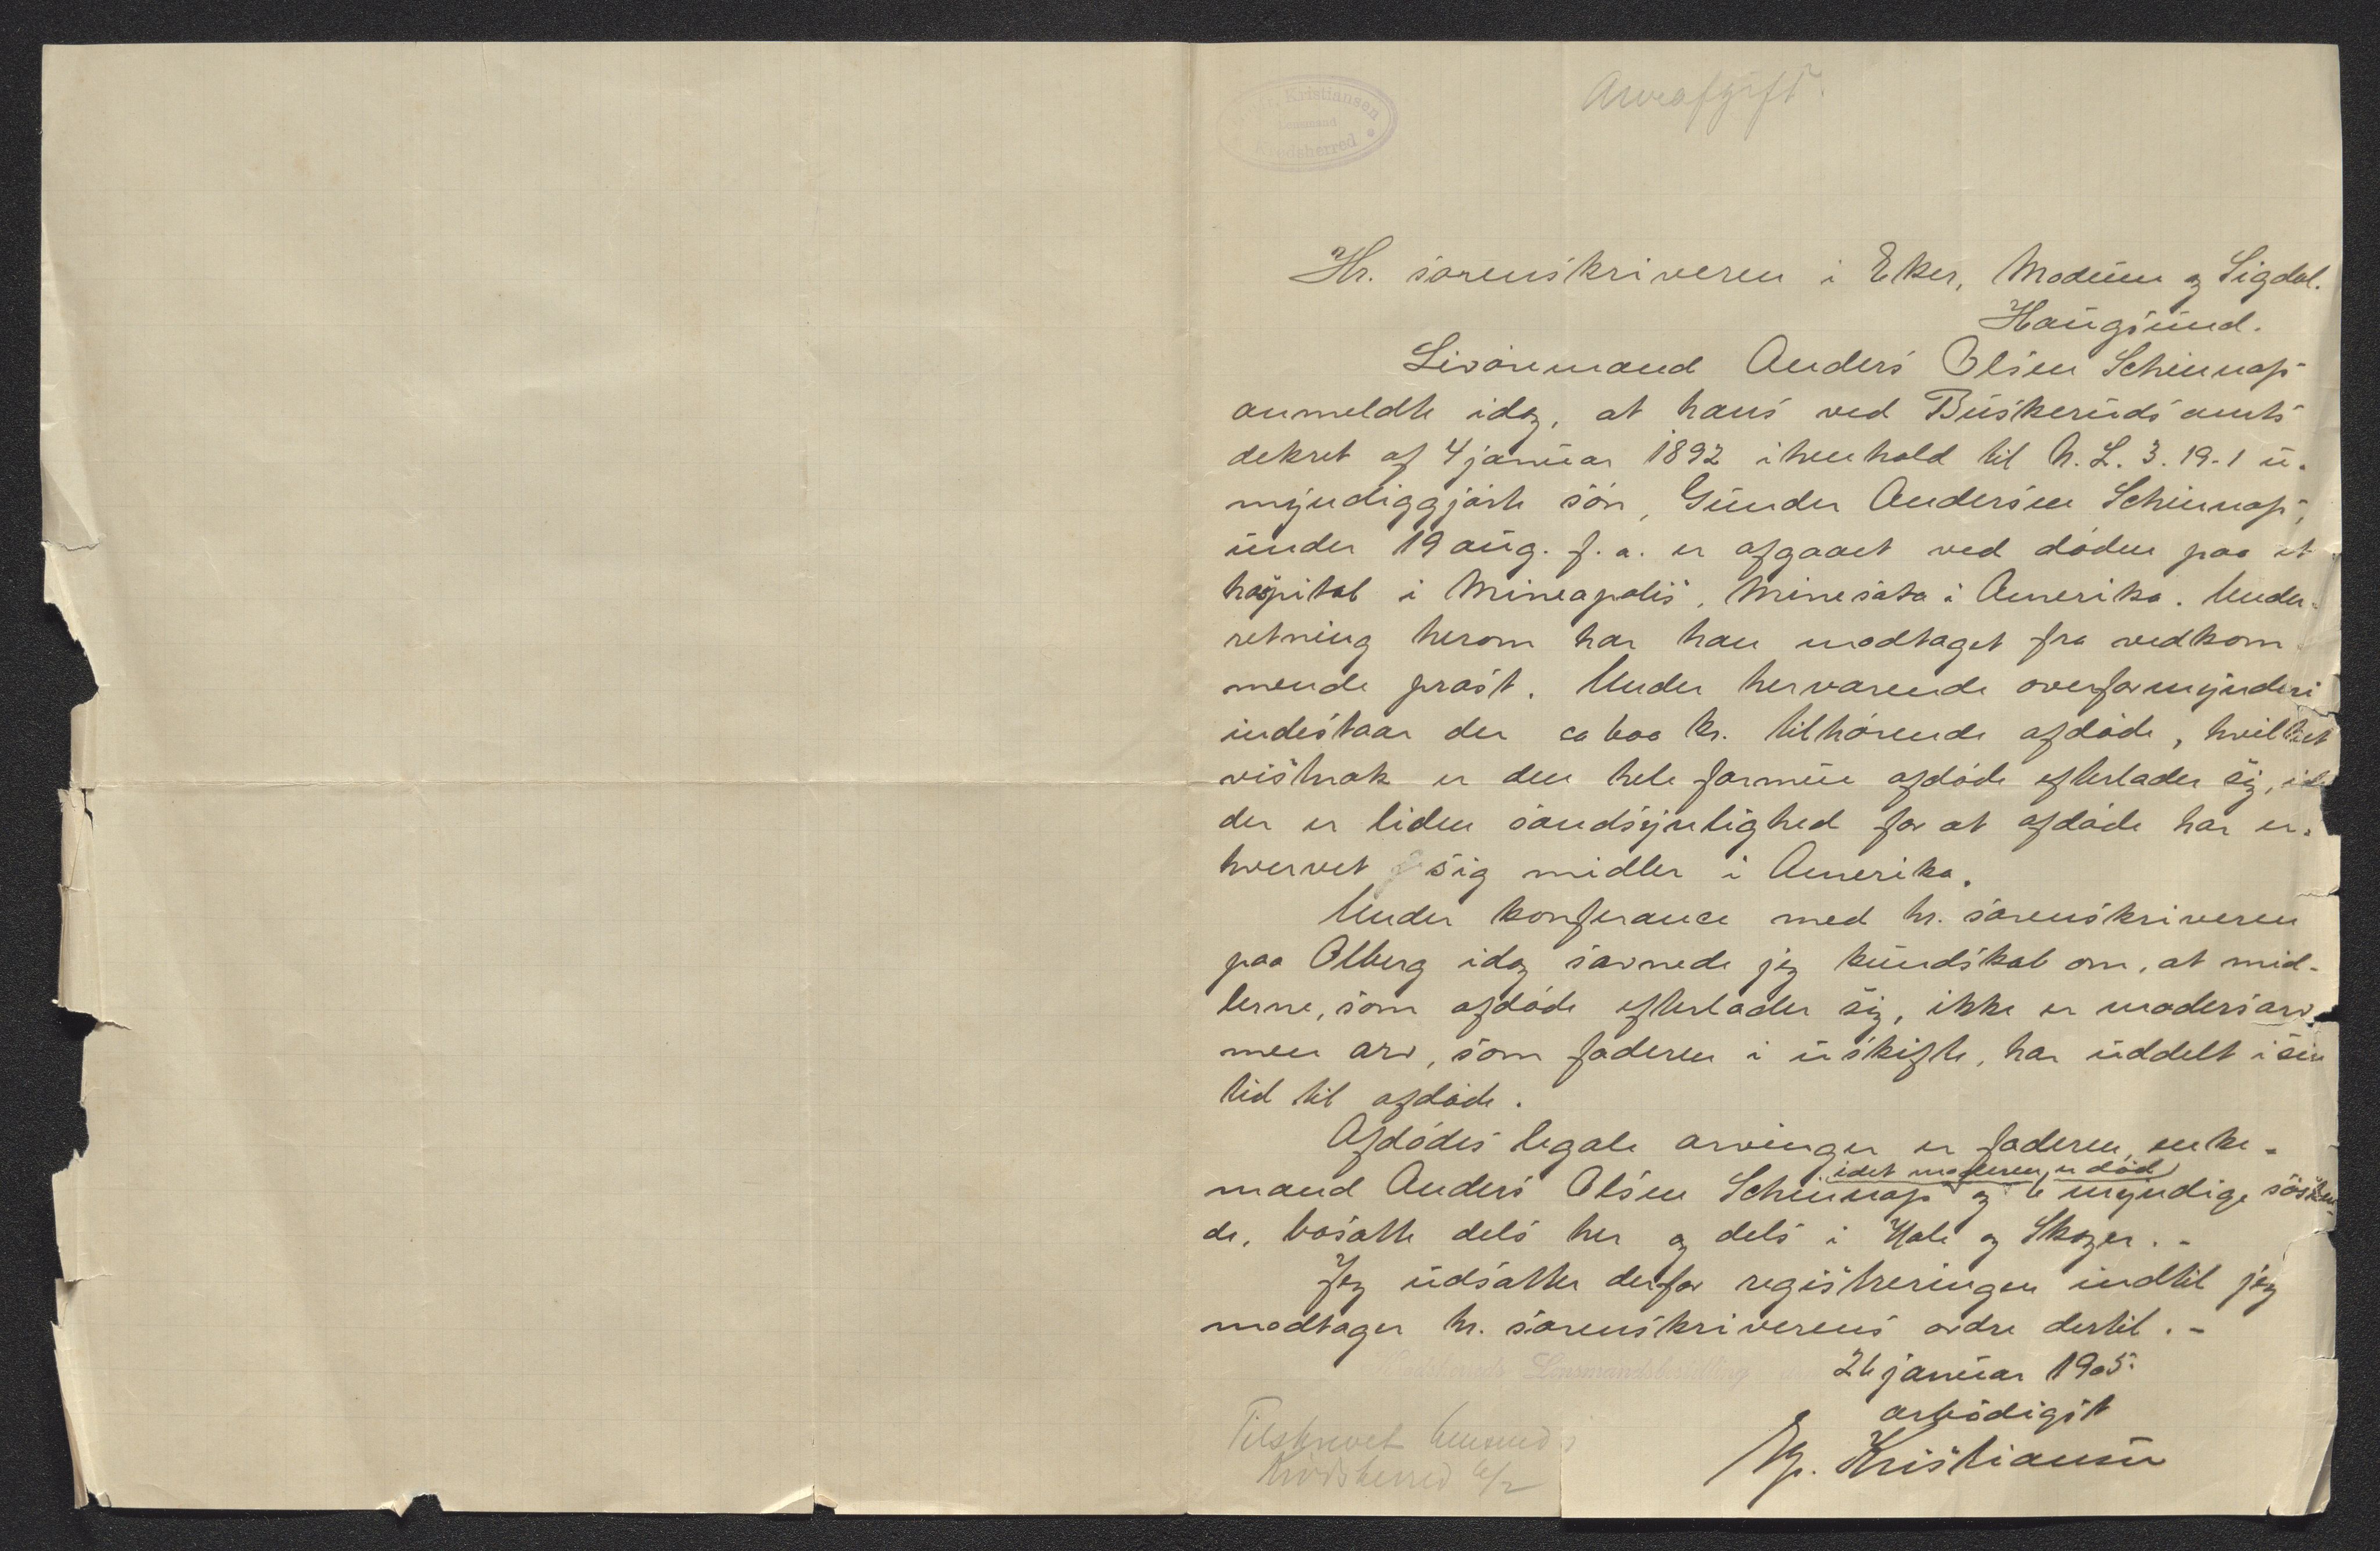 Arveafgift.
Kristiansen
Lensmand
Krødsherred
Hr. sorenskriveren i Eker, Modum og Sigdal.
Haugsund.
Livørnmand Anders Olsen Schinnaps
anmeldte idag, at hans ved Buskeruds amts
dekret af 4 januar 1892 ihenhold til N. L. 3. 19-1 u-
myndiggjørte søn, Gunder Andersen Schinnaps,
under 19 aug. f. a. er afgaaet ved døden paa et
hospital i Mineapolis, Minesota i Amerika. Under-
retning herom har han modtaget fra vedkom-
mende præst. Under herværende overformynderi
indestaar der ca 600 kr. tilhørende afdøde, hvilket
vistnok er den hele formue afdøde efterlader sig, idet
der er liden sandsynlighed for at afdøde har er-
hvervet sig midler i Amerika.
Under konferance med hr. sorenskriveren
paa Olberg idag savnede jeg kundskab om, at mid-
lerne, som afdøde efterlader sig, ikke er modersarv,
men arv, som faderen i uskifte, har uddelt i sin
tid til afdøde.
Afdødes legale arvinger er faderen, enke-
idet moderen er død
mand Anders Olsen Schinnaps og 6 myndige søsken-
de, bosatte dels her og dels i Hole og Skoger. -
Jeg udsætter derfor registreringen indtil jeg
modtager hr. sorenskriverens ordre dertil. -
Lensmandsbestilling 26 januar 1905.
ærbødigst
Kristiansen
Tilskrevet lensmd i
Krødsherred 6/2